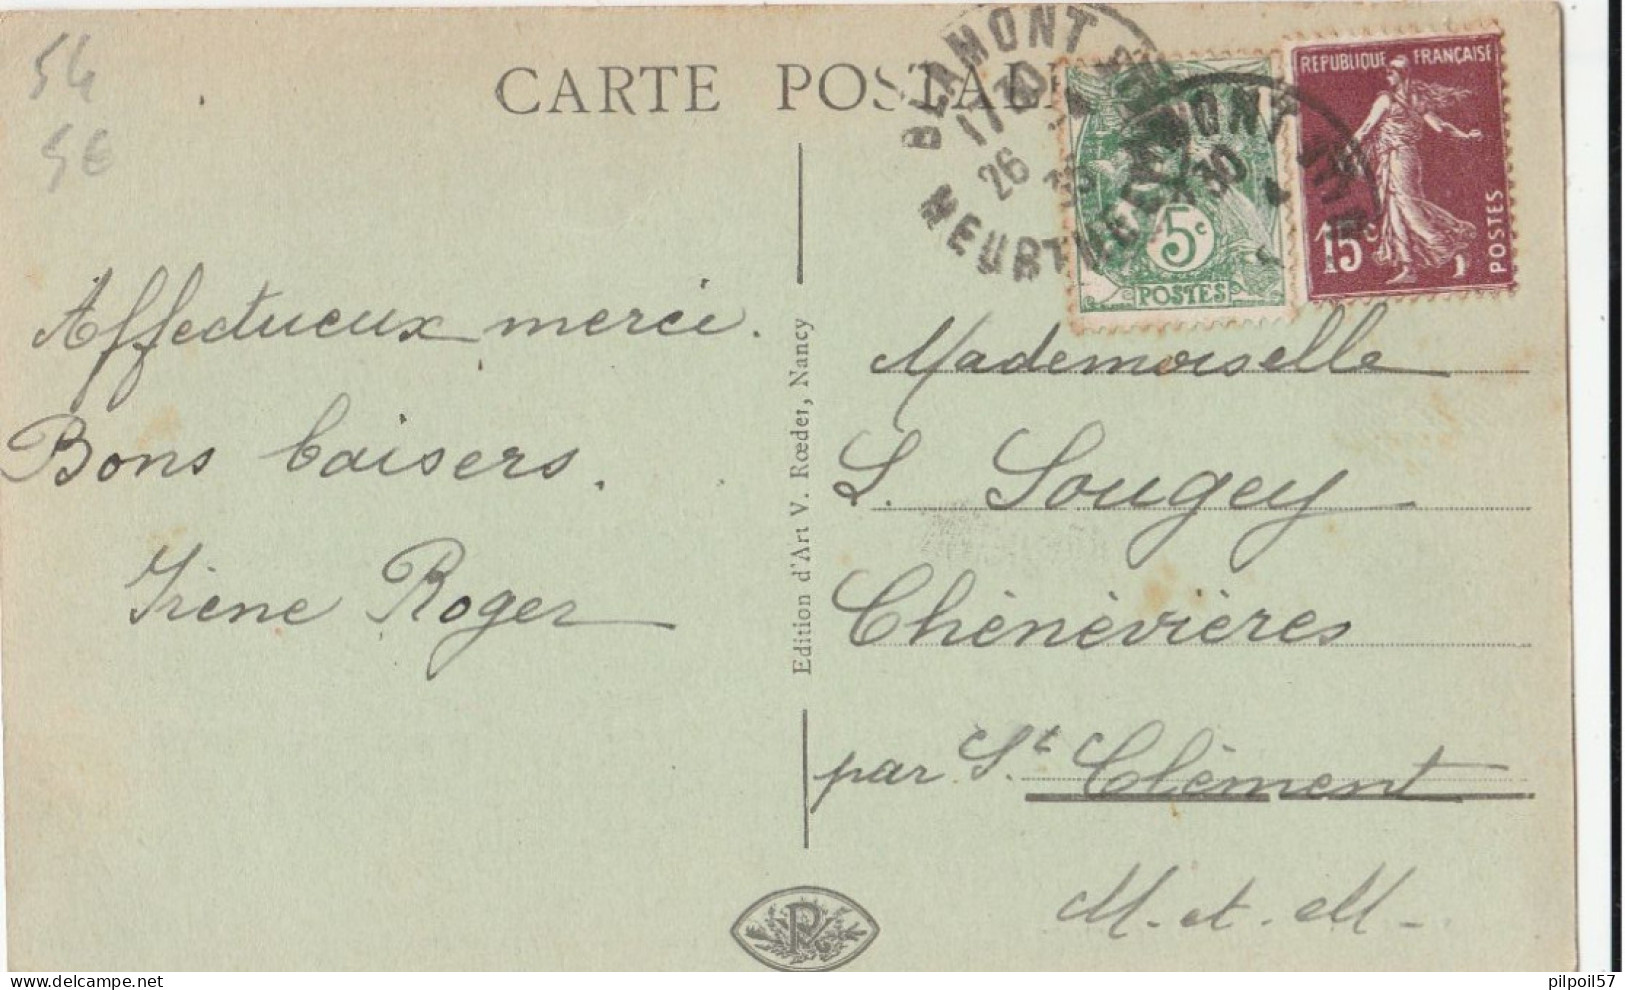 54
5€
CARTE POSTALE
BLAMONT
17 30
26
MEURTHE
BLAMONT
30
5c
POSTES
REPUBLIQUE FRANÇAISE
15c
POSTES
Affectueux merci.
Bons baisers.
Irène Roger
Edition d'Art V. Rœder, Nancy
Mademoiselle
L. Sougey
Chènévières
par St. Clément
M. et. M.
pilpoil57